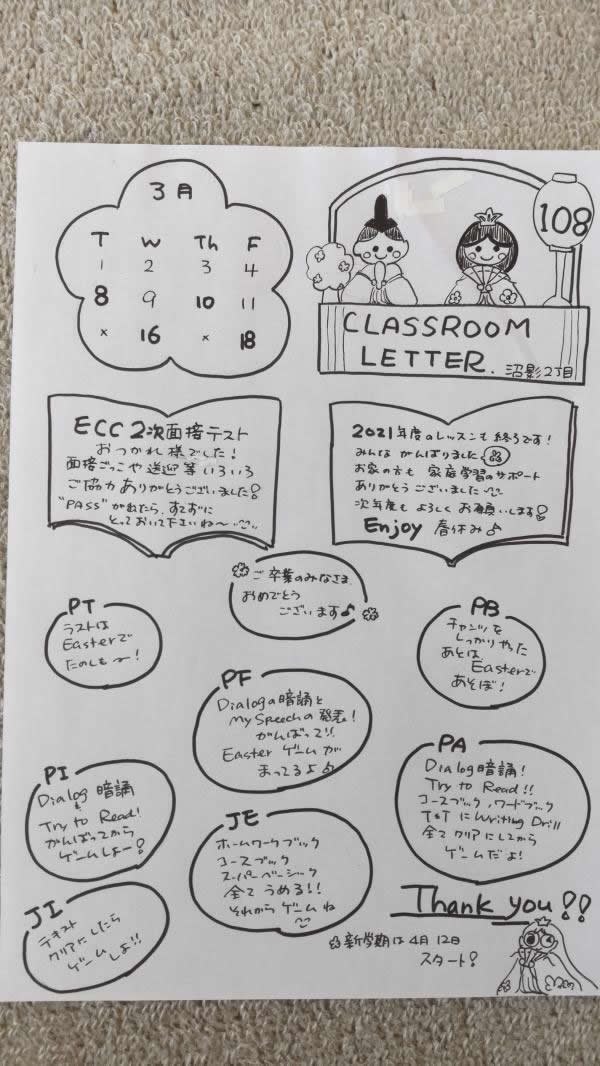 3月
T W Th F
1 2 3 4
8 9 10 11
× 16 × 18
108
CLASSROOM
LETTER.
沼影2丁目
ECC 2次面接テスト
おつかれ様でした!
面接ごっこや送迎等いろいろ
ご協力ありがとうございました!
"PASS"がねたら、すてずに
とっておいて下さいね〜
2021年度のレッスンも終了です!
みんな がんばりました
お家の方も 家庭学習のサポート
ありがとう ございました
次年度も よろしく お願いします!
Enjoy 春休み♪
ご卒業のみなさま
おめでとう
ございます♪
PT
ラストは
Easterで
たのしも〜!
PB
チャンツを
しっかりやった
あとは、
Easterで
あそぼ!
PF
Dialogの暗誦と
My Speechの発表!
がんばって!!
Easter ゲームが
まってるよ♪
PI
Dialog 暗誦
&
Try to Read!
がんばってから
ゲームしよー!
PA
Dialog暗誦!
Try to Read!!
コースブック,ワードブック
T&T に Writing Drill
全て クリアにしてから
ゲームだよ!
JE
ホームワークブック
コースブック
スーパーベーシック
全て うめる!!
それから ゲームね
JI
テキスト
クリアにしたら
ゲームしよ!!
Thank you!!
新学期は 4月 12日
スタート!